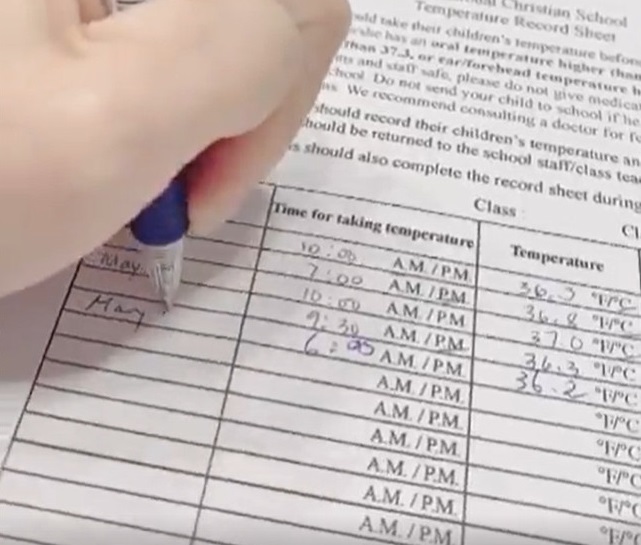 Christian School
Temperature Record Sheet
take their children's temperature
has an oral temperature higher
than 37.3, or ear/forehead temperature
and staff safe, please do not give
Do not send your child to school if he
We recommend consulting a doctor for
should record their children's temperature
be returned to the school staff/class
should also complete the record sheet during
Class
Time for taking temperature Temperature
10:00 A.M. / P.M. 36.3 °F/°C
May 7:00 A.M. / P.M. 36.8 °F/°C
10:00 A.M. / P.M. 37.0 °F/°C
May 9:30 A.M. / P.M. 36.3 °F/°C
6: A.M. / P.M. 36.2 °F/°C
A.M. / P.M. °F/°C
A.M. / P.M. °F/°C
A.M. / P.M. °F/°C
A.M. / P.M. °F/°C
A.M. / P.M. °F/°C
A.M. / P.M.